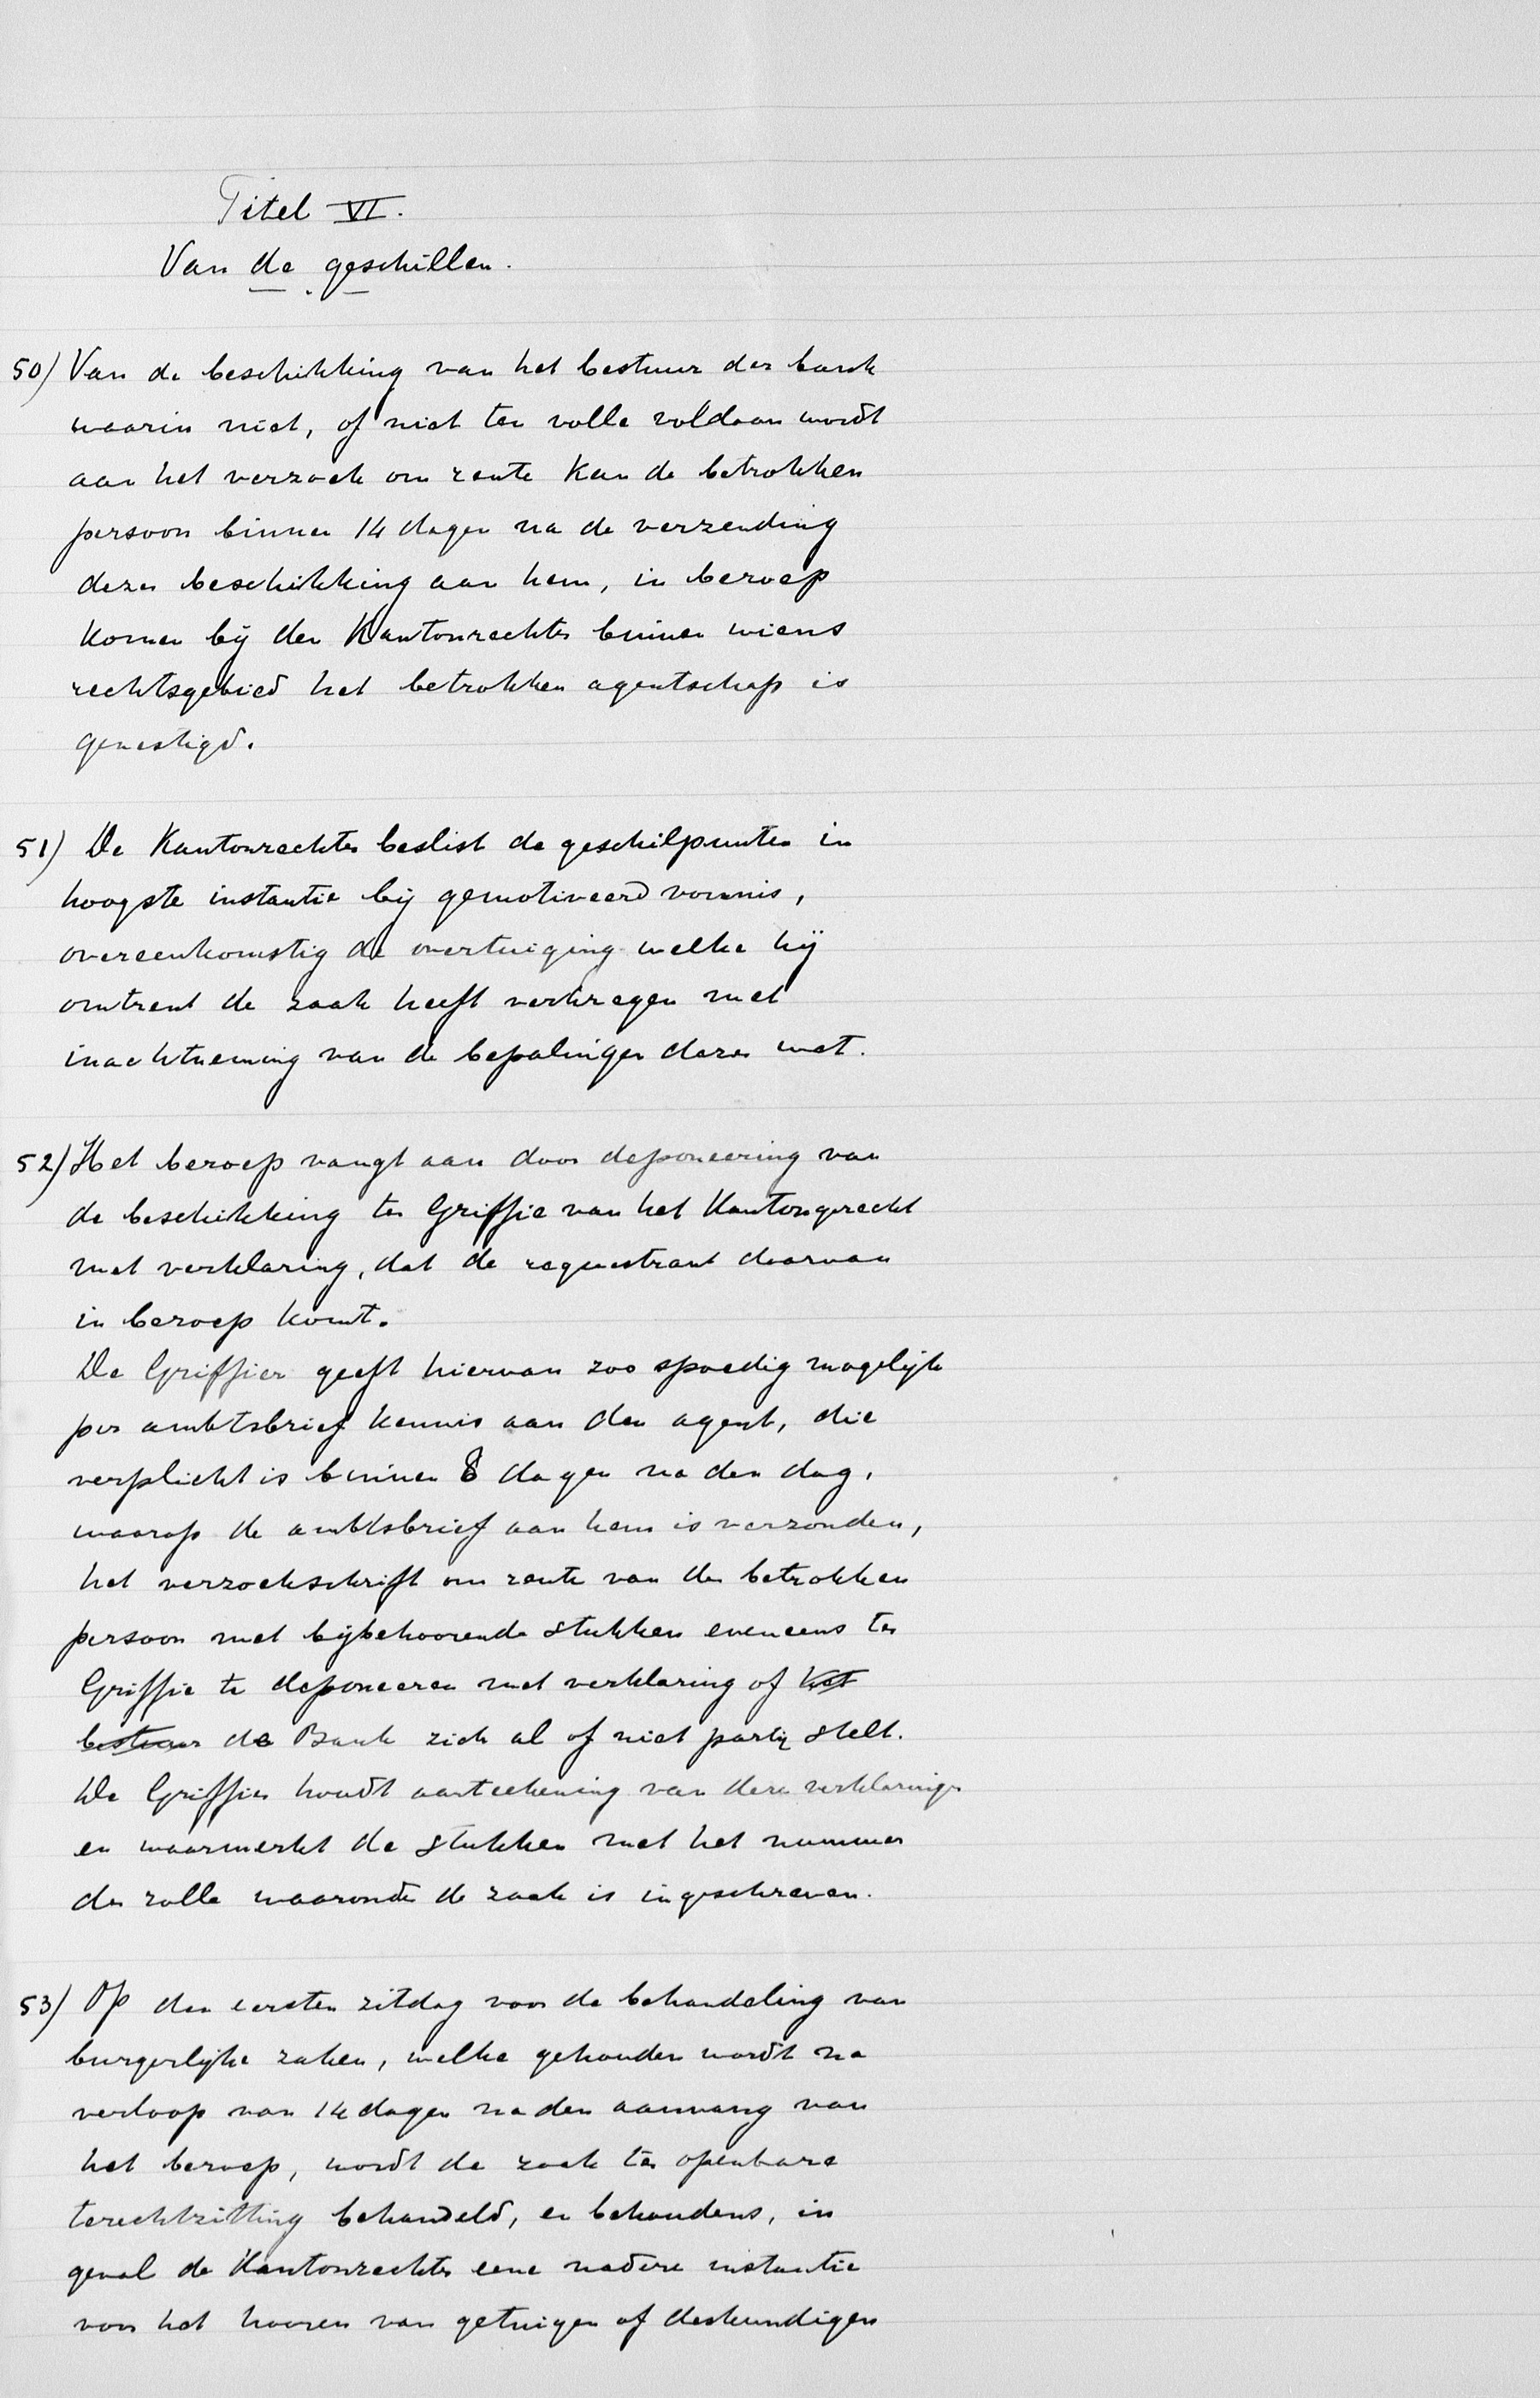 Titel VI.
Van de geschillen.
50) Van de beschikking van het bestuur der bank
waarin niet, of niet ten volle voldaan wordt
aan het verzoek om rente kan de betrokken
persoon binnen 14 dagen na de verzending
dezer beschikking aan hem, in beroep
komen bij den Kantonrechter binnen wiens
rechtsgebied het betrokken agentschap is
gevestigd.
51) De Kantonrechter beslist de geschilpunten in
hoogste instantie bij gemotiveerd vonnis,
overeenkomstig de overtuiging welke hij
omtrent de zaak heeft verkregen met
inachtneming van de bepalingen dezer wet.
52) Het beroep vangt aan door deponeering van
de beschikking ter Griffie van het Kantongerecht
met verklaring, dat de requestrant daarvan
in beroep komt.
De Griffier geeft hiervan zoo spoedig mogelijk
per ambtsbrief kennis aan den agent, die
verplicht is binnen 8 dagen na den dag,
waarop de ambtsbrief aan hem is verzonden,
het verzoekschrift om rente van den betrokken
persoon met bijbehoorende stukken eveneens ter
Griffie te deponeeren met verklaring of het
bestuur de Bank zich al of niet partij stelt.
De Griffier houdt aanteekening van deze verklaringen
en waarmerkt de stukken met het nummer
der rolle waaronder de zaak is ingeschreven.
53) Op den eersten zitdag voor de behandeling van
burgerlijke zaken, welke gehouden wordt na
verloop van 14 dagen na den aanvang van
het beroep, wordt de zaak ter openbare
terechtzitting behandeld, en behoudens, in
geval de Kantonrechter eene nadere instantie
voor het hooren van getuigen of deskundigen